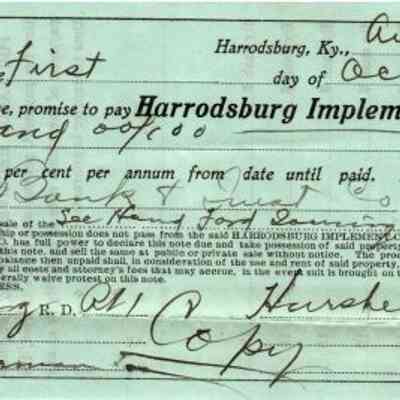 Harrodsburg, Ky., Au
First day of Oc
e, promise to pay Harrodsburg Implem
and 00/100
per cent per annum from date until paid.
Bank & Trust Co
sale of the
ship or possession does not pass from the said HARRODSBURG IMPLEMENT
O. has full power to declare this note due and take possession of said property
this note, and sell the same at public or private sale without notice. The proc
balance then unpaid shall, in consideration of the use and rent of said property,
y all costs and attorney's fees that may accrue, in the event suit is brought on the
erally waive protest on this note.
RESS.
R. D. R#1
Copy